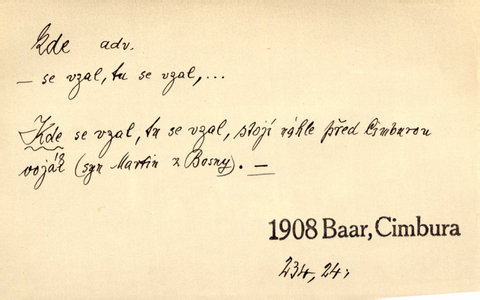 Kde adv.
– se vzal, tu se vzal,...
Kde se vzal, tu se vzal, stojí náhle před Cimburou
voják (syn Martin z Bosny). –
1908 Baar, Cimbura
234, 24,